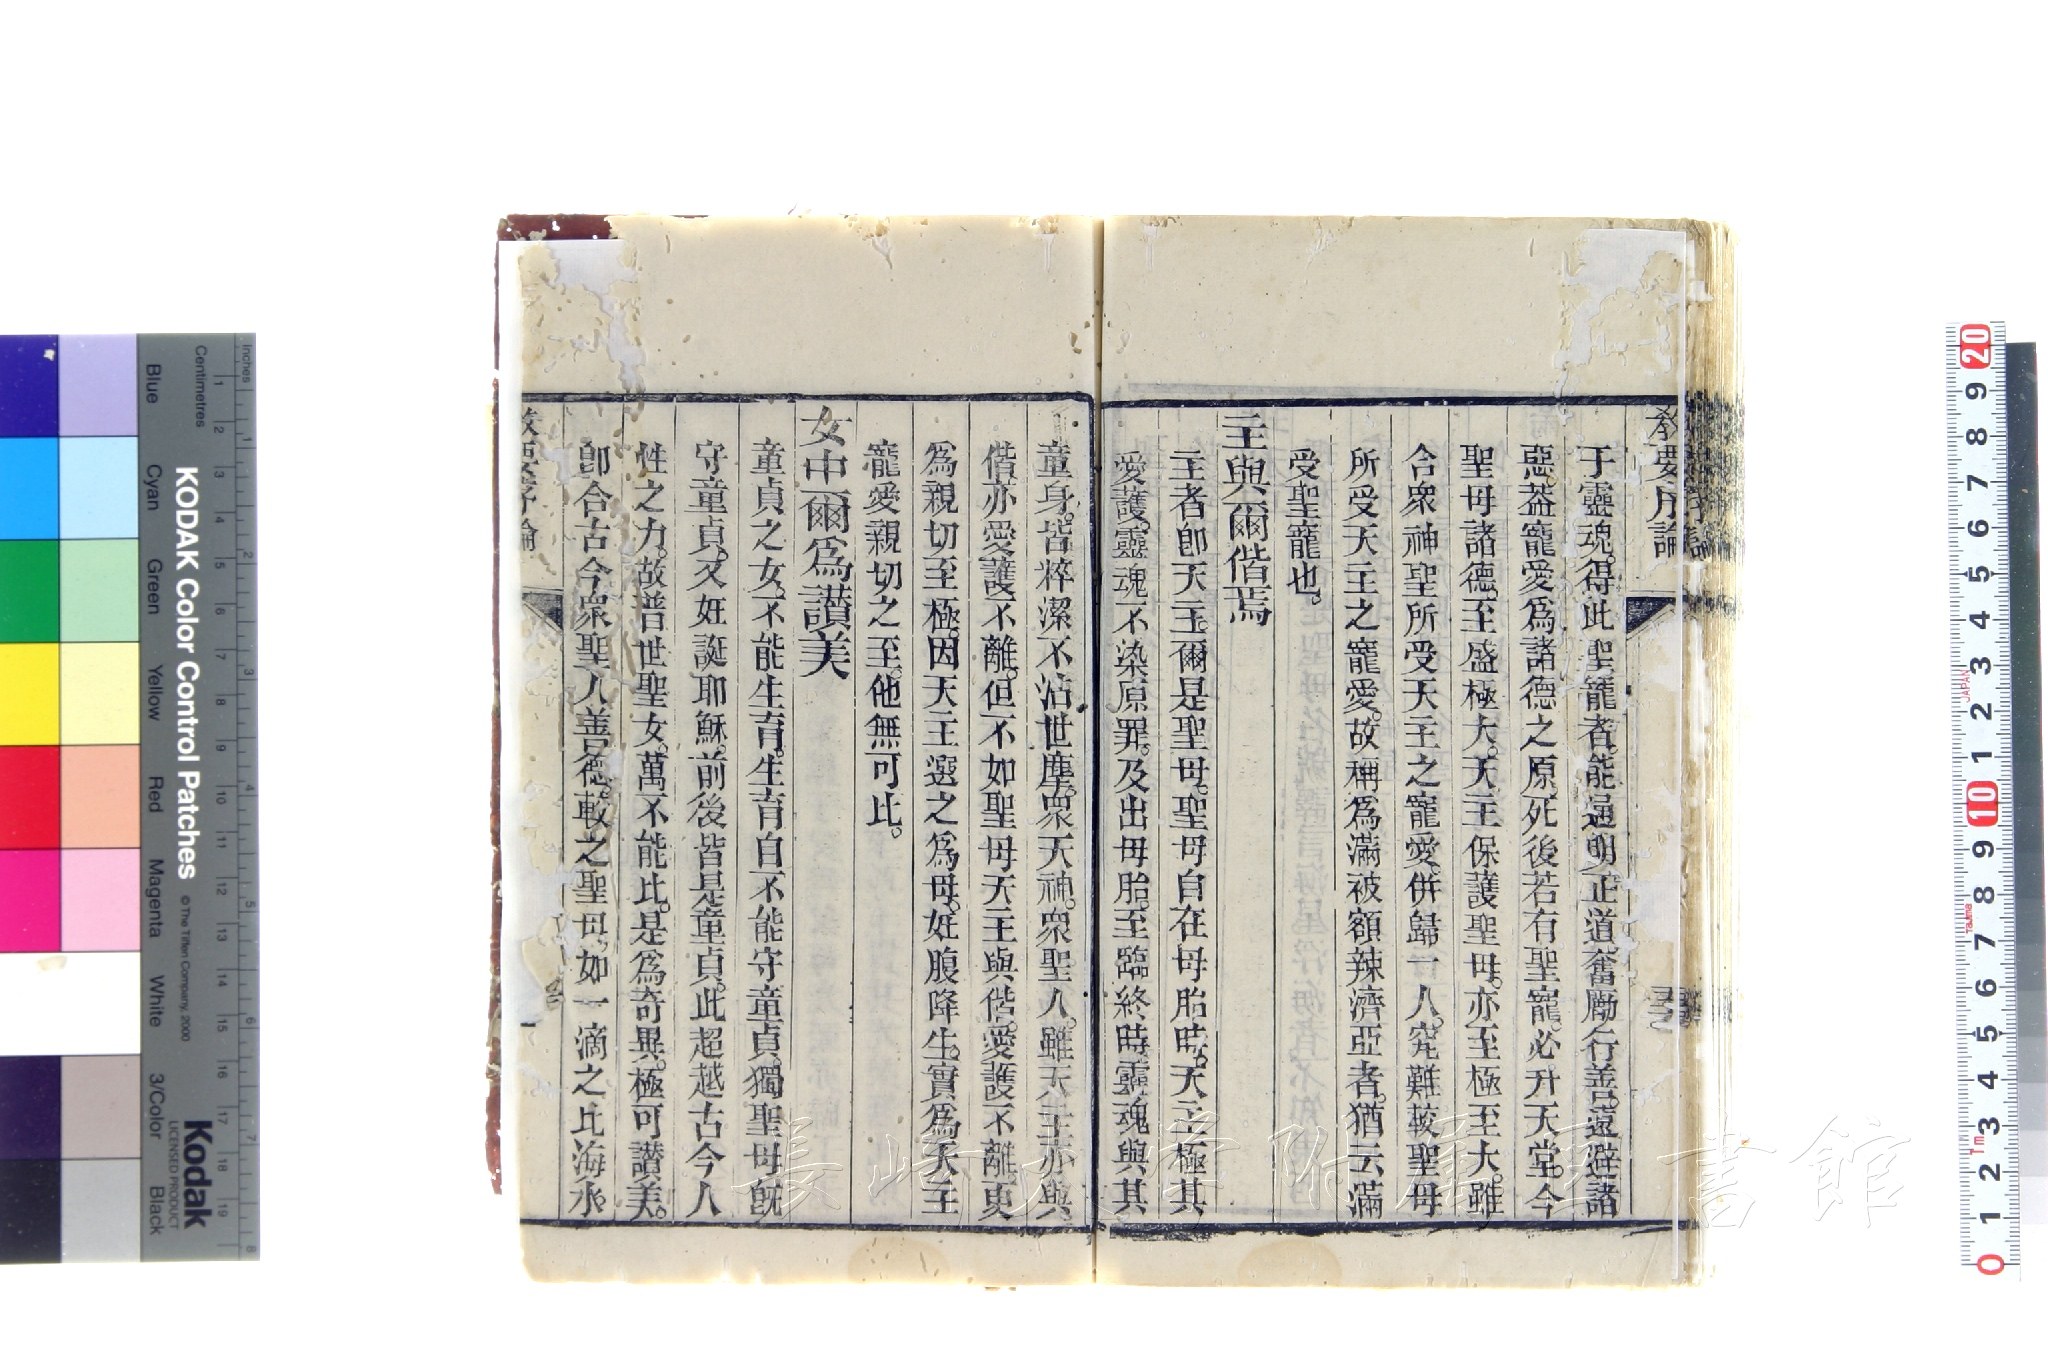 教要序論
于靈魂。得此聖寵者。能通明正道。奮勵行善。遠避諸
惡。葢寵愛爲諸德之原。死後若有聖寵。必升天堂。今
聖母諸德。至盛極大。天主保護聖母。亦至極至大。雖
合衆神聖所受天主之寵愛。併歸一人。究難較聖母
所受天主之寵愛。故稱爲滿被額辣濟亞者。猶云滿
受聖寵也。
主與爾偕焉
主者卽天主。爾是聖母。聖母自在母胎時。天主極其
愛護。靈魂不染原罪。及出母胎。至臨終時。靈魂與其
童身。皆粹潔不沾世塵。衆天神。衆聖人。雖天主亦與
偕。亦愛護不離。但不如聖母天主與偕。愛護不離。更
爲親切至極。因天主選之爲母。妊腹降生。實爲天主
寵愛親切之至。他無可比。
女中爾爲讚美
童貞之女。不能生育。生育自不能守童貞。獨聖母旣
守童貞。又妊誕耶穌。前後皆是童貞。此超越古今人
性之力。故普世聖女。萬不能比。是爲奇異。極可讚美。
卽合古今衆聖人善德。較之聖母。如一滴之比海水。
長崎大學附屬圖書館
KODAK Color Control Patches
© The Tiffen Company, 2000
Kodak
LICENSED PRODUCT
Inches
Centimetres
Blue
Cyan
Green
Yellow
Red
Magenta
White
3/Color
Black